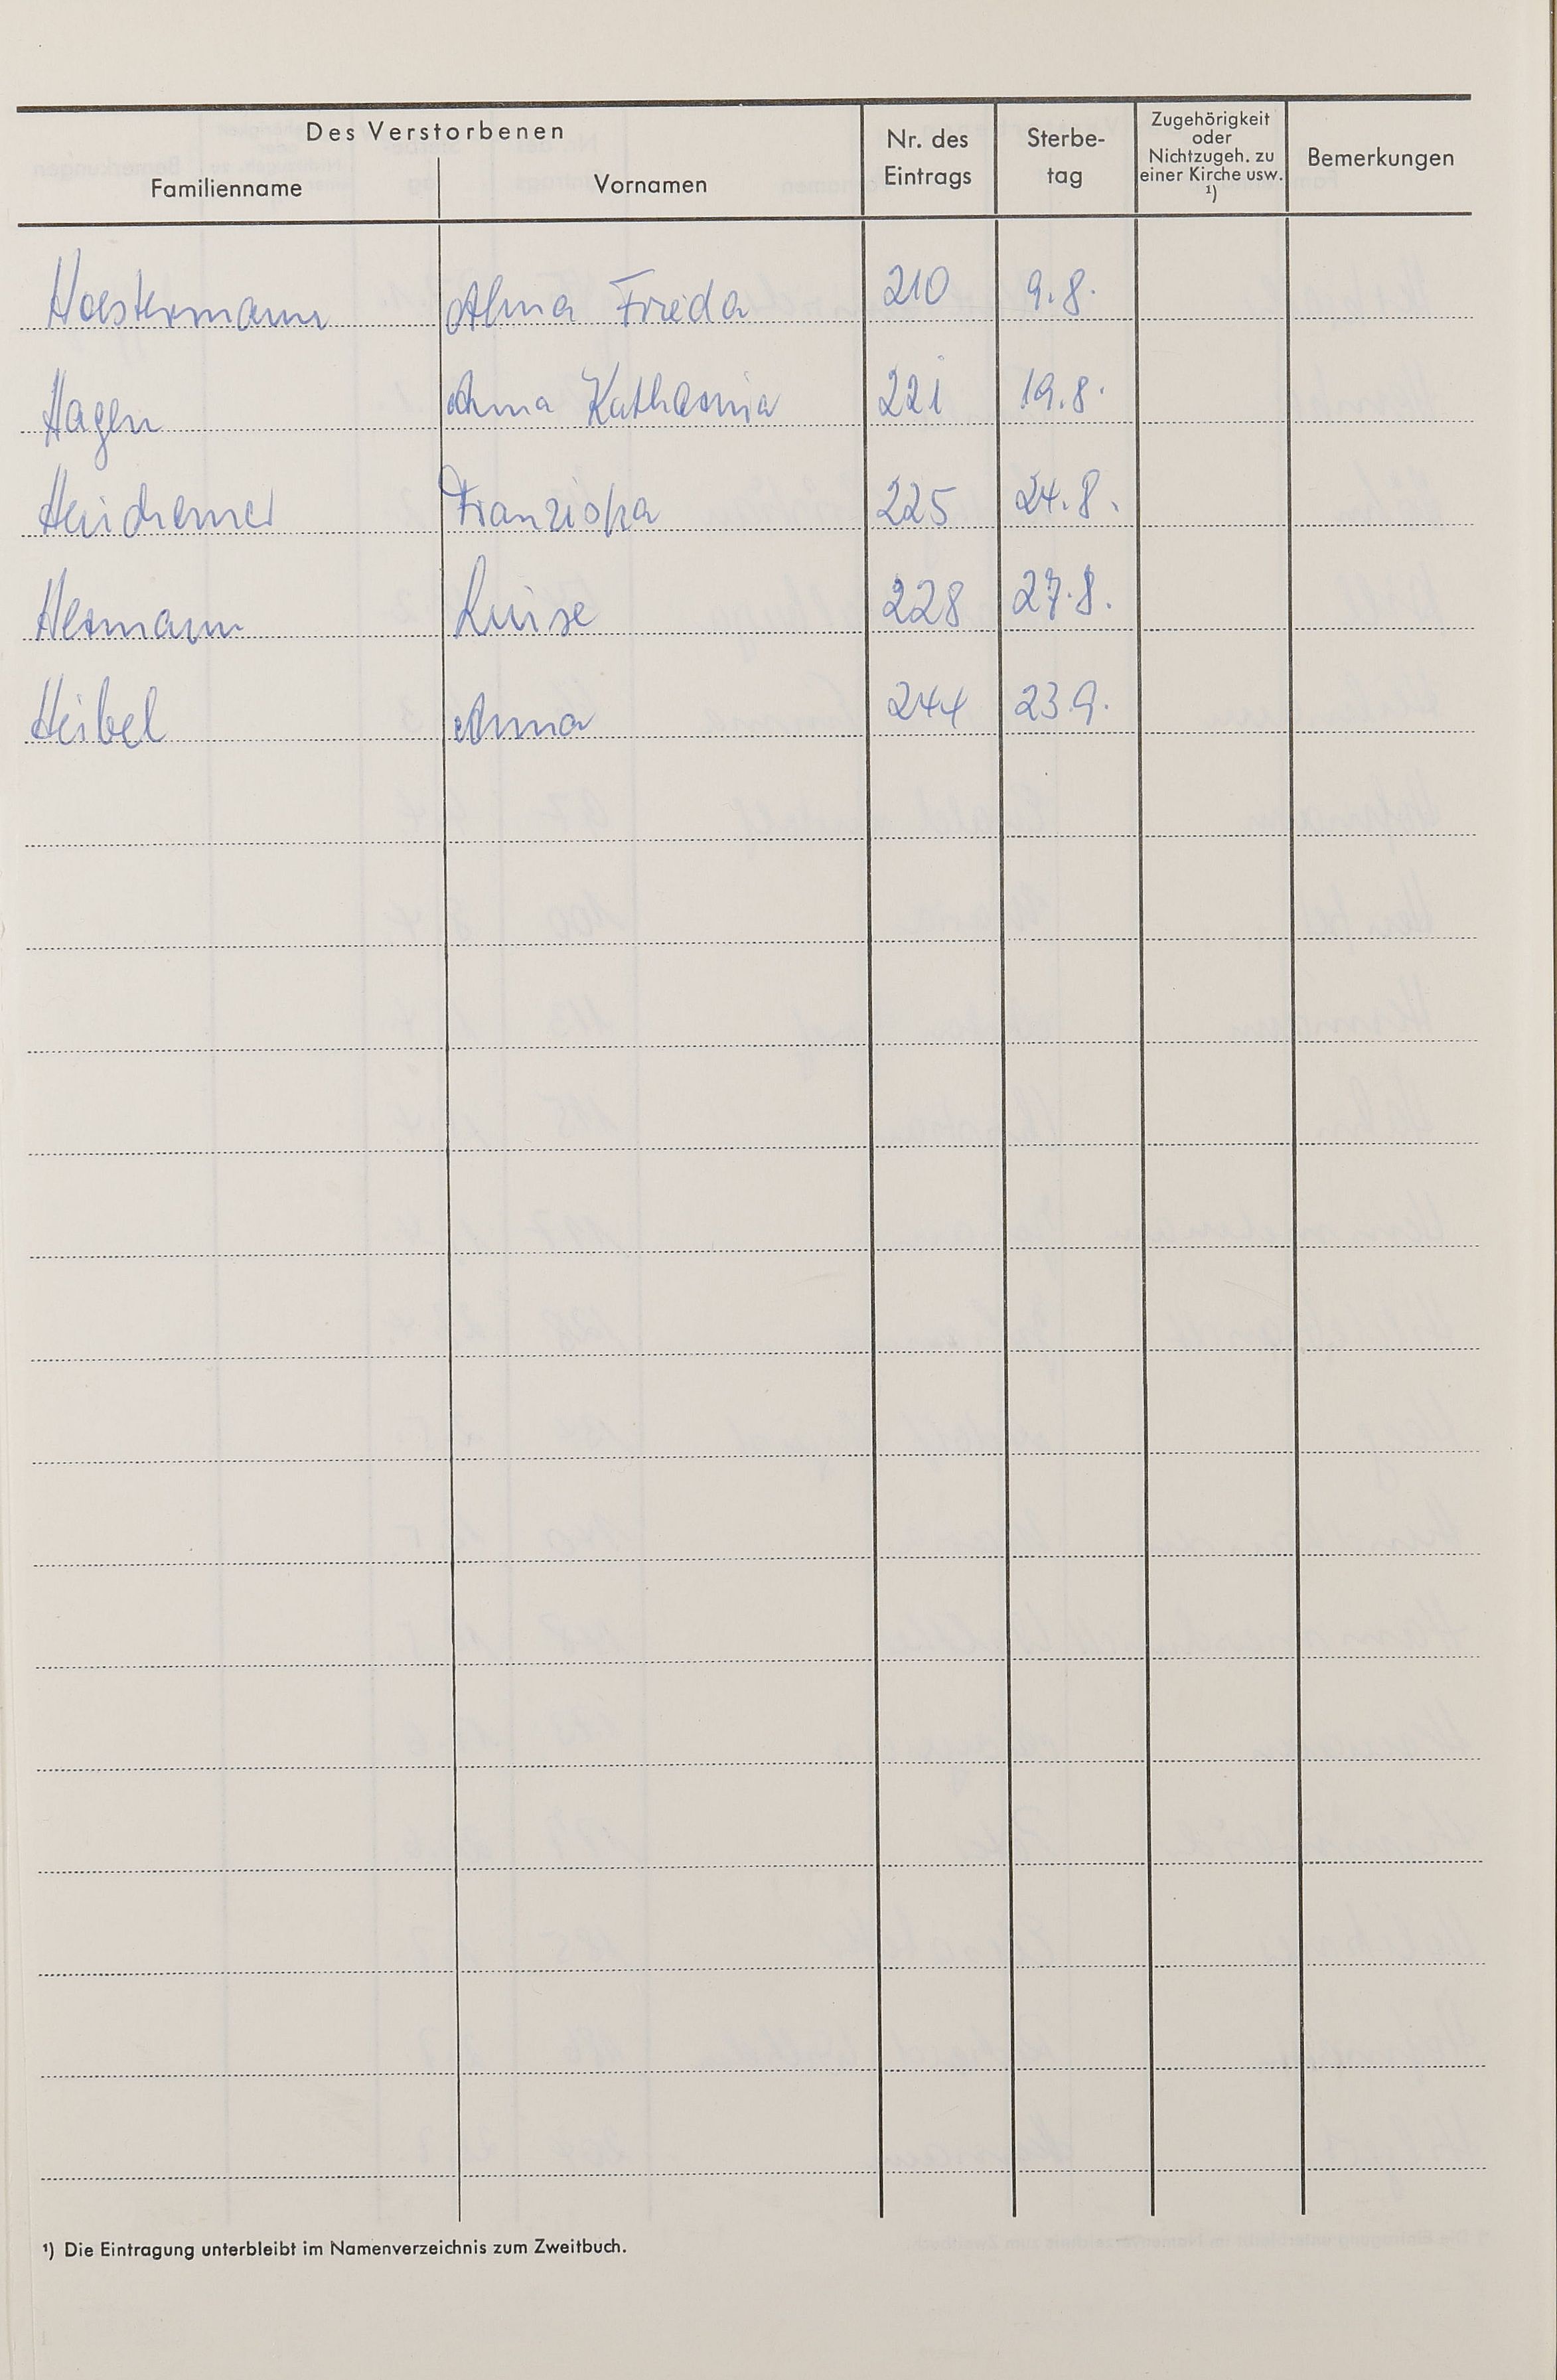 Des Verstorbenen
Familienname Vornamen Nr. des Eintrags Sterbe- tag Zugehörigkeit oder Nichtzugeh. zu einer Kirche usw. ¹) Bemerkungen
Alma Frieda 210 9.8.
Hagen Anna Katharina 221 19.8.
Franziska 225 24.8.
Hermann Luise 228 27.8.
Heibel Anna 244 23.9.
¹) Die Eintragung unterbleibt im Namenverzeichnis zum Zweitbuch.